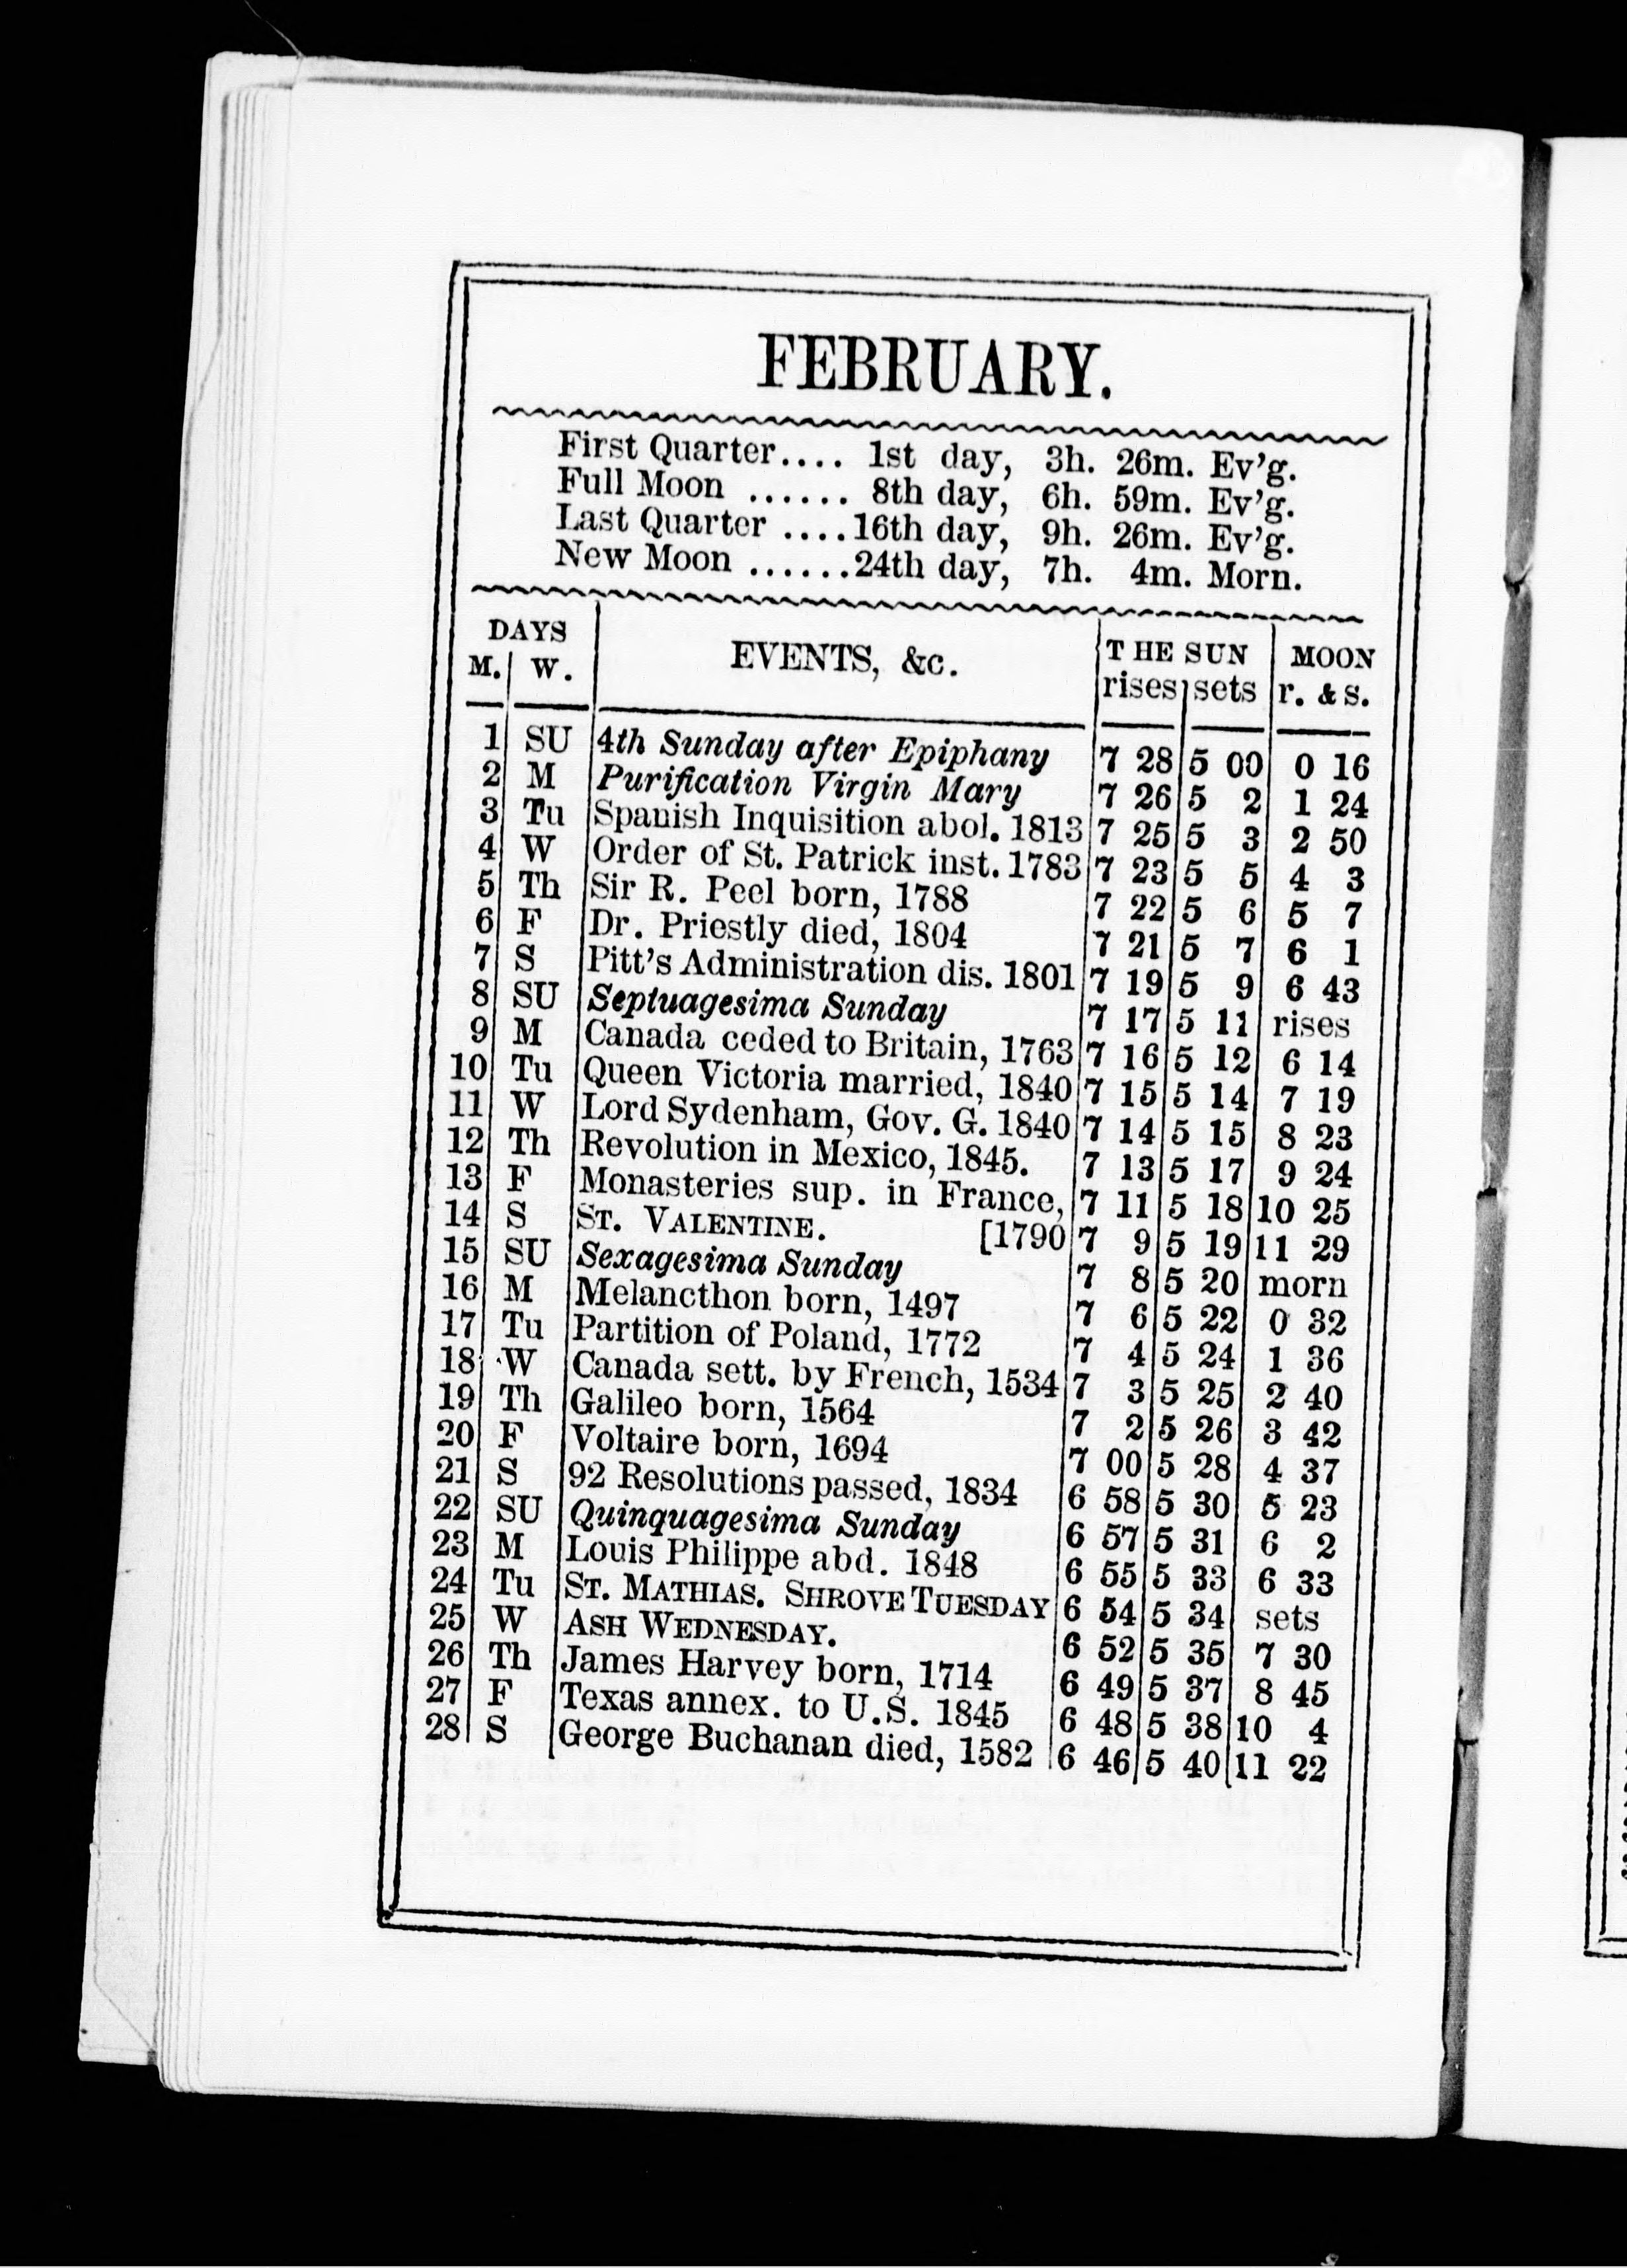 FEBRUARY.
First Quarter.... 1st day, 3h. 26m. Ev'g.
Full Moon ...... 8th day, 6h. 59m. Ev'g.
Last Quarter ....16th day, 9h. 26m. Ev'g.
New Moon ......24th day, 7h. 4m. Morn.
DAYS EVENTS, &c. THE SUN MOON
M. W. rises sets r. & s.
1 SU 4th Sunday after Epiphany 7 28 5 00 0 16
2 M Purification Virgin Mary 7 26 5 2 1 24
3 Tu Spanish Inquisition abol. 1813 7 25 5 3 2 50
4 W Order of St. Patrick inst. 1783 7 23 5 5 4 3
5 Th Sir R. Peel born, 1788 7 22 5 6 5 7
6 F Dr. Priestly died, 1804 7 21 5 7 6 1
7 S Pitt's Administration dis. 1801 7 19 5 9 6 43
8 SU Septuagesima Sunday 7 17 5 11 rises
9 M Canada ceded to Britain, 1763 7 16 5 12 6 14
10 Tu Queen Victoria married, 1840 7 15 5 14 7 19
11 W Lord Sydenham, Gov. G. 1840 7 14 5 15 8 23
12 Th Revolution in Mexico, 1845. 7 13 5 17 9 24
13 F Monasteries sup. in France, 7 11 5 18 10 25
14 S ST. VALENTINE. [1790 7 9 5 19 11 29
15 SU Sexagesima Sunday 7 8 5 20 morn
16 M Melancthon born, 1497 7 6 5 22 0 32
17 Tu Partition of Poland, 1772 7 4 5 24 1 36
18 W Canada sett. by French, 1534 7 3 5 25 2 40
19 Th Galileo born, 1564 7 2 5 26 3 42
20 F Voltaire born, 1694 7 00 5 28 4 37
21 S 92 Resolutions passed, 1834 6 58 5 30 5 23
22 SU Quinquagesima Sunday 6 57 5 31 6 2
23 M Louis Philippe abd. 1848 6 55 5 33 6 33
24 Tu ST. MATHIAS. SHROVE TUESDAY 6 54 5 34 sets
25 W ASH WEDNESDAY. 6 52 5 35 7 30
26 Th James Harvey born, 1714 6 49 5 37 8 45
27 F Texas annex. to U.S. 1845 6 48 5 38 10 4
28 S George Buchanan died, 1582 6 46 5 40 11 22